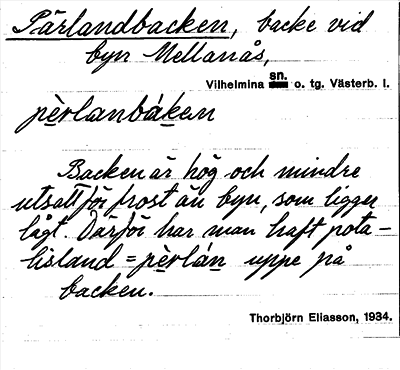 Pärlandbacken, backe vid
byn Mellanås,
Vilhelmina sn. o. tg. Västerb. l.
pèrlanbáken
Backen är hög och mindre
utsatt för frost än byn, som ligger
lågt. Därför har man haft pota-
tisland = pèrlán uppe på
backen.
Thorbjörn Eliasson, 1934.